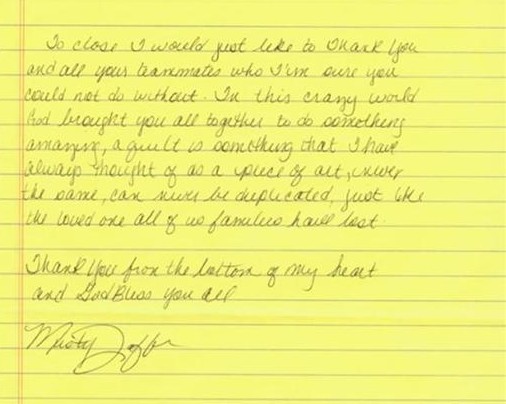 To close I would just like to Thank You
and all your teammates who I'm sure you
could not do without. In this crazy world
God brought you all together to do something
amazing, a quilt is something that I have
always thought of as a piece of art, never
the same, can never be duplicated, just like
the loved one all of us families have lost.
Thank You from the bottom of my heart
and God Bless you all
Misty